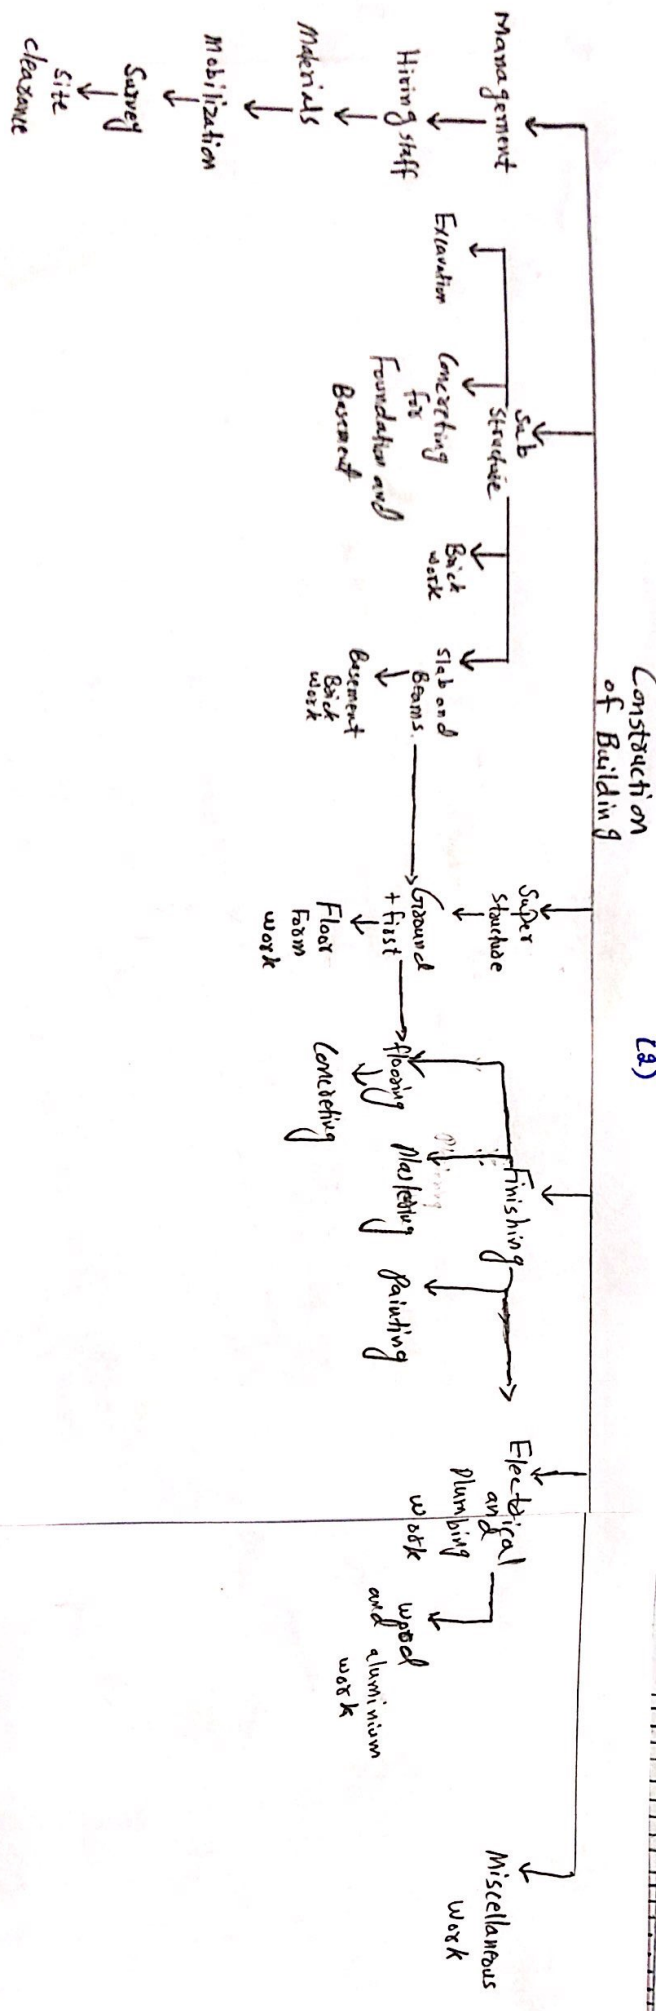 Construction
of Building
(2)
Management
Hiring staff
Materials
Mobilization
Survey
Site
clearance
Sub
structure
Excavation
Concreting
for
Foundation and
Basement
Brick
work
Slab and
Beams.
Basement
Brick
work
Super
structure
Ground
+ first
Floor
Form
work
Finishing
flooring
Concreting
Plastering
Painting
Electrical
and
Plumbing
work
wood
and aluminium
work
Miscellaneous
Work